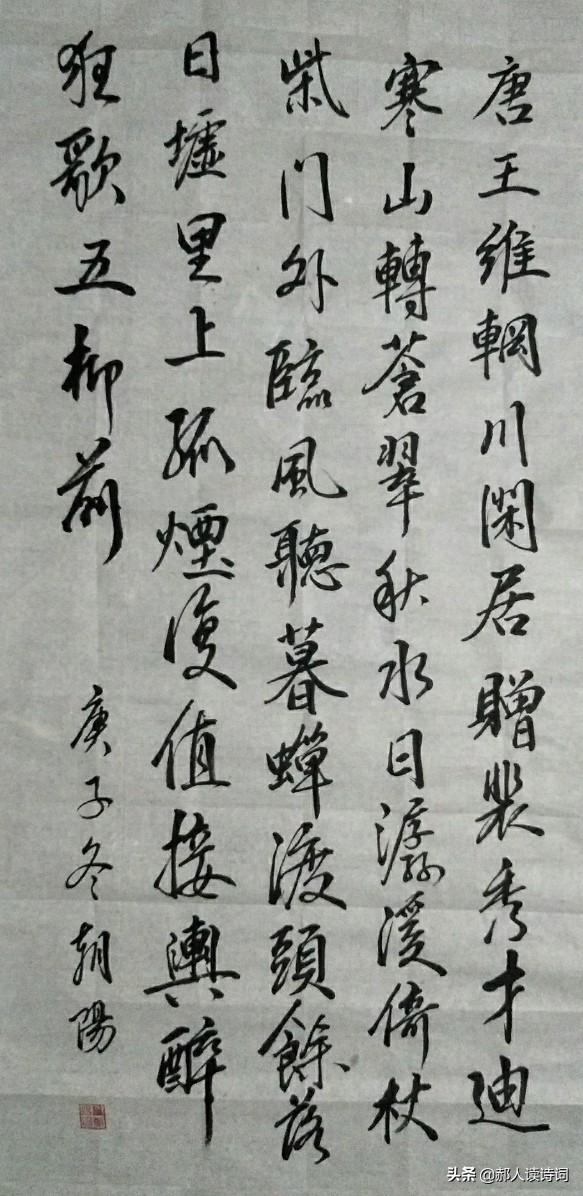 唐王維輞川閑居贈裴秀才迪
寒山轉蒼翠秋水日潺湲倚杖
柴門外臨風聽暮蟬渡頭餘落
日墟里上孤煙復值接輿醉
狂歌五柳前
庚子冬朝陽
头条 @郝人读诗词